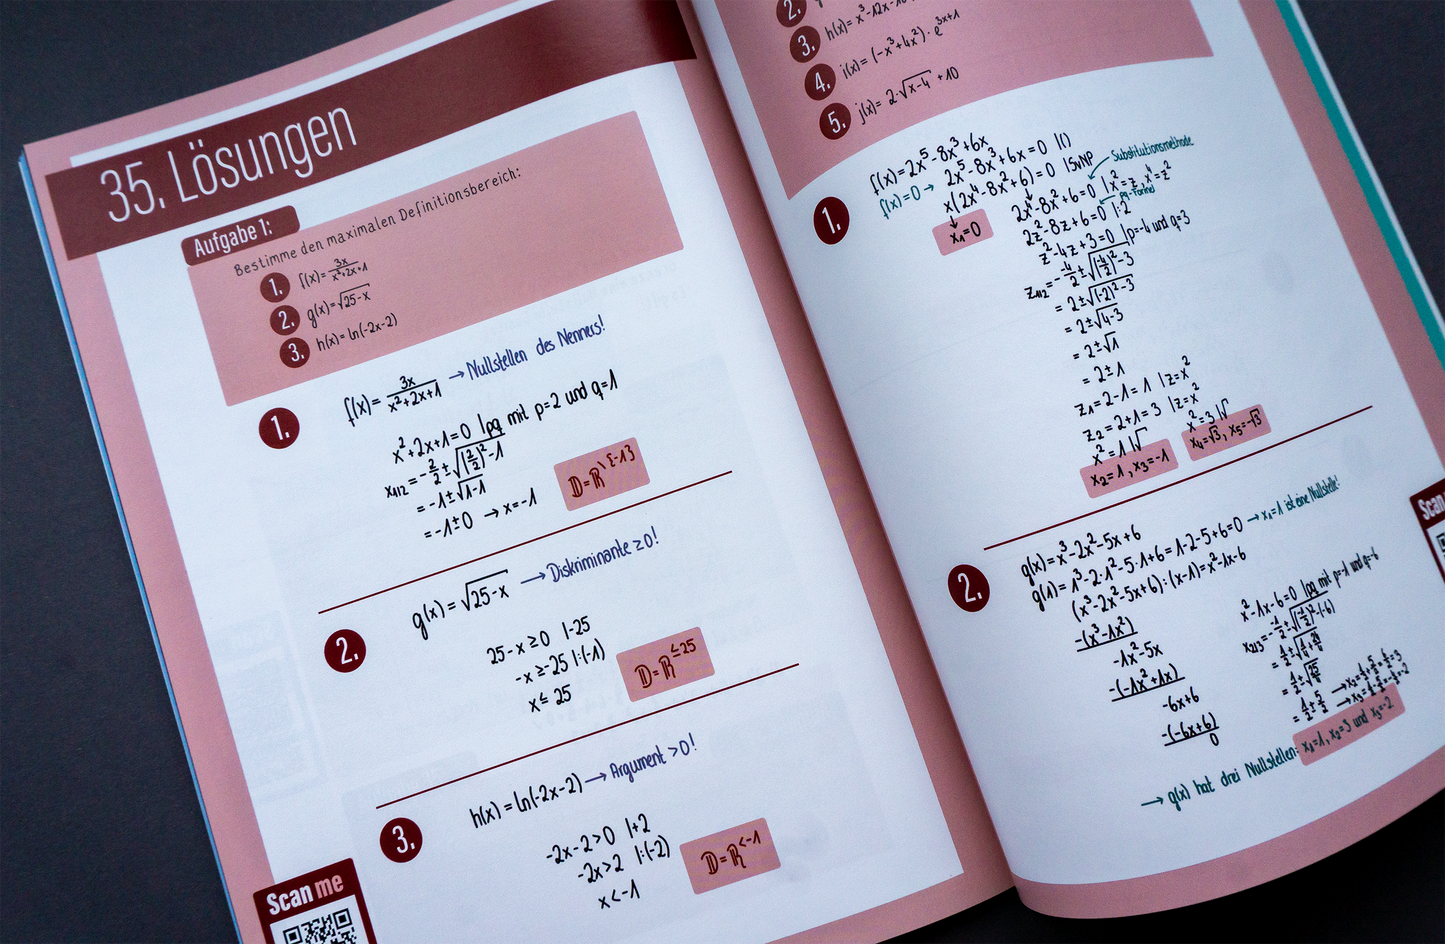 35. Lösungen
Aufgabe 1:
Bestimme den maximalen Definitionsbereich:
1. f(x)= 3x/(x²+2x+1)
2. g(x)=√(25-x)
3. h(x)= ln(-2x-2)
1.
f(x)= 3x/(x²+2x+1) → Nullstellen des Nenners!
x²+2x+1=0 |pq mit p=2 und q=1
x₁/₂ = -2/2 ± √((2/2)²-1)
= -1±√(1-1)
= -1±0 → x=-1
𝔻=ℝ\{-1}
2.
g(x)=√(25-x) → Diskriminante ≥0!
25-x ≥0 |-25
-x ≥-25 |:(-1)
x ≤ 25
𝔻=ℝ^≤25
3.
h(x)= ln(-2x-2) → Argument >0!
-2x-2>0 |+2
-2x>2 |:(-2)
x<-1
𝔻=ℝ^<-1
Scan me
2.
3.
4. i(x)= (-x³+4x²)·e^(3x+1)
5. j(x)= 2·√(x-4) +10
1.
f(x)=2x⁵-8x³+6x
f(x)=0 → 2x⁵-8x³+6x=0 |()
x(2x⁴-8x²+6)=0 |SvNP
x₁=0
Substitutionsmethode
2x⁴-8x²+6=0 |x²=z, x⁴=z²
2z²-8z+6=0 |:2
pq-Formel
z²-4z+3=0 |p=-4 und q=3
z₁/₂=-(-4/2)±√((-4/2)²-3)
= 2±√((-2)²-3)
= 2±√(4-3)
= 2±√1
= 2±1
z₁=2-1=1 |z=x²
z₂=2+1=3 |z=x²
x²=1 |√
x₂=1, x₃=-1
x²=3 |√
x₄=√3, x₅=-√3
2.
g(x)=x³-2x²-5x+6
g(1)=1³-2·1²-5·1+6=1-2-5+6=0 → x₁=1 ist eine Nullstelle!
(x³-2x²-5x+6):(x-1)=x²-1x-6
-(x³-1x²)
-1x²-5x
-(-1x²+1x)
-6x+6
-(-6x+6)
0
x²-1x-6=0 |pq mit p=-1 und q=-6
x₂/₃=-(-1/2)±√((-1/2)²-(-6))
= 1/2±√(1/4+24/4)
= 1/2±√(25/4)
= 1/2±5/2 → x₂=1/2+5/2=6/2=3
→ x₃=1/2-5/2=-4/2=-2
→ g(x) hat drei Nullstellen: x₁=1, x₂=3 und x₃=-2
Scan